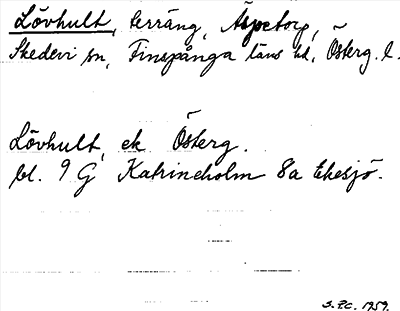 Lövhult, terräng, Äspetorp,
Skedevi sn, Finspånga läns hd, Österg. l.
Lövhult, ek Österg.
bl. 9 G Katrineholm 8a Ekesjö.
S.P.C. 1959.